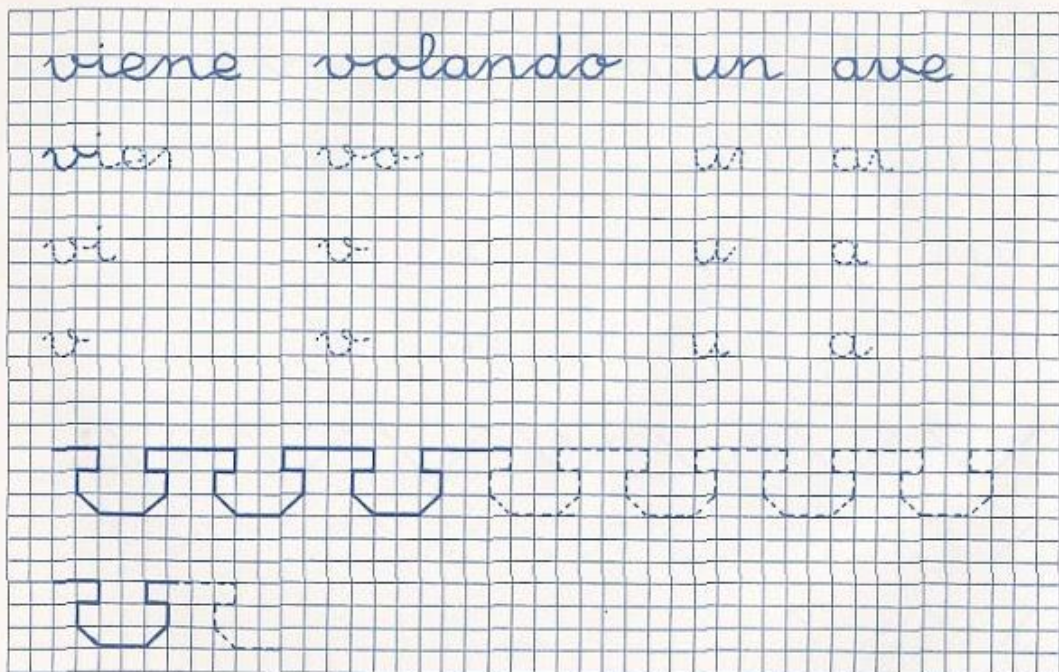 viene volando un ave
vien vo un an
vi v u a
v v u a